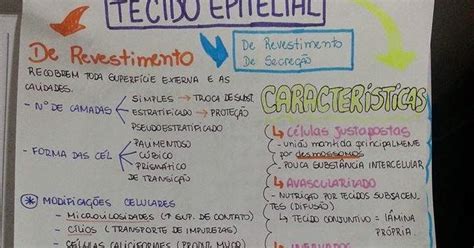 TECIDO EPITELIAL
De Revestimento
De Secreção
De Revestimento
RECOBREM TODA SUPERFÍCIE EXTERNA E AS
CAVIDADES.
- Nº DE CAMADAS
SIMPLES → TROCA DE SUBST.
ESTRATIFICADO → PROTEÇÃO
PSEUDOESTRATIFICADO
- FORMA DAS CÉL
PAVIMENTOSO
CÚBICO
PRISMÁTICO
DE TRANSIÇÃO
* MODIFICAÇÕES CELULARES
- MICROVILOSIDADES (↑ SUP. DE CONTATO)
- CÍLIOS (TRANSPORTE DE IMPUREZAS)
- CÉLULAS CALICIFORMES (PRODUZ MUCO)
CARACTERÍSTICAS
↳ CÉLULAS JUSTAPOSTAS
- UNIÃO MANTIDA PRINCIPALMENTE
POR DESMOSSOMOS
- POUCA SUBSTÂNCIA INTERCELULAR
↳ AVASCULARIZADO
- NUTRIÇÃO POR TECIDOS SUBJACEN-
TES (DIFUSÃO)
↳ TECIDO CONJUNTIVO = LÂMINA
PRÓPRIA.
↳ INERVADO